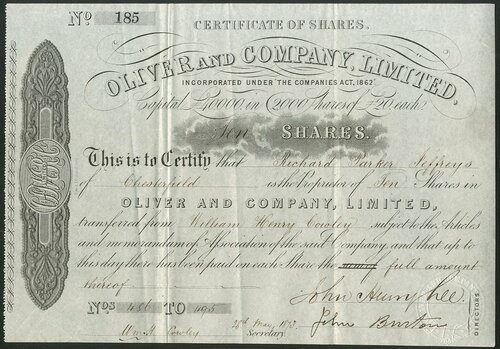 No 185
CERTIFICATE OF SHARES.
OLIVER AND COMPANY, LIMITED,
INCORPORATED UNDER THE COMPANIES ACT, 1862
Capital £40000 in 2000 Shares of £20 each
Ten SHARES.
This is to Certify that Richard Parker Jeffreys
of Chesterfield is the Proprietor of Ten Shares in
OLIVER AND COMPANY, LIMITED,
transferred from William Henry Cowley subject to the Articles
and memorandum of Association of the said Company, and that up to
this day there has been paid on each Share the full amount
thereof
Nos 486 TO 495
John
Wm H. Cowley 28th May 1873 John Burton
Secretary.
DIRECTORS